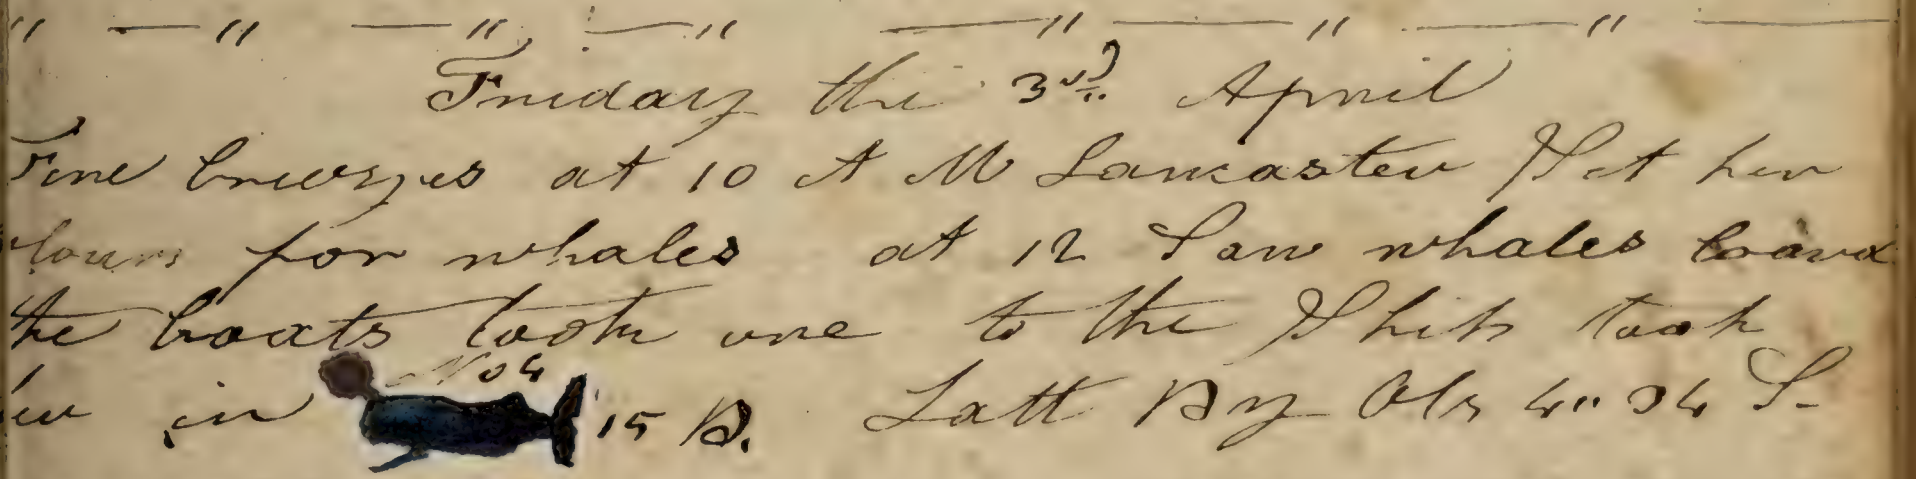 " — " — " — " — " — " — " —
Friday the 3rd April
Fine breezes at 10 A M Lancaster Set her
for whales at 12 Saw whales
the boats took one to the Ship took
her in No 4 15 B. Latt By Obs 4" 34 S